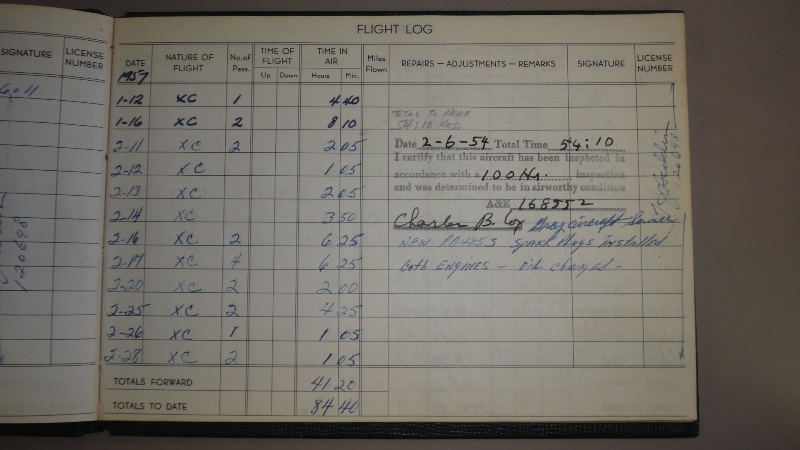 FLIGHT LOG
SIGNATURE LICENSE NUMBER
DATE NATURE OF FLIGHT No. of Pass. TIME OF FLIGHT Up Down TIME IN AIR Hours Min. Miles Flown REPAIRS — ADJUSTMENTS — REMARKS SIGNATURE LICENSE NUMBER
1957
1-12 XC 1 4 40
1-16 XC 2 8 10
TOTAL TO HERE
54:10 HRS.
2-11 XC 2 2 05
Date 2-6-54 Total Time 54:10
I certify that this aircraft has been inspected in
2-12 XC 1 05
accordance with a 100 Hr. inspection
2-13 XC 2 05
and was determined to be in airworthy condition
A&E 168552
2-14 XC 3 50
Charles B. Cox Aircraft Service
2-16 XC 2 6 25
NEW Spark Plugs installed
2-17 XC 4 6 25
both ENGINES — Oil changed -
2-20 XC 2 2 00
2-25 XC 2 4 25
2-26 XC 1 1 05
2-28 XC 2 1 05
TOTALS FORWARD 41 20
TOTALS TO DATE 84 40
120698